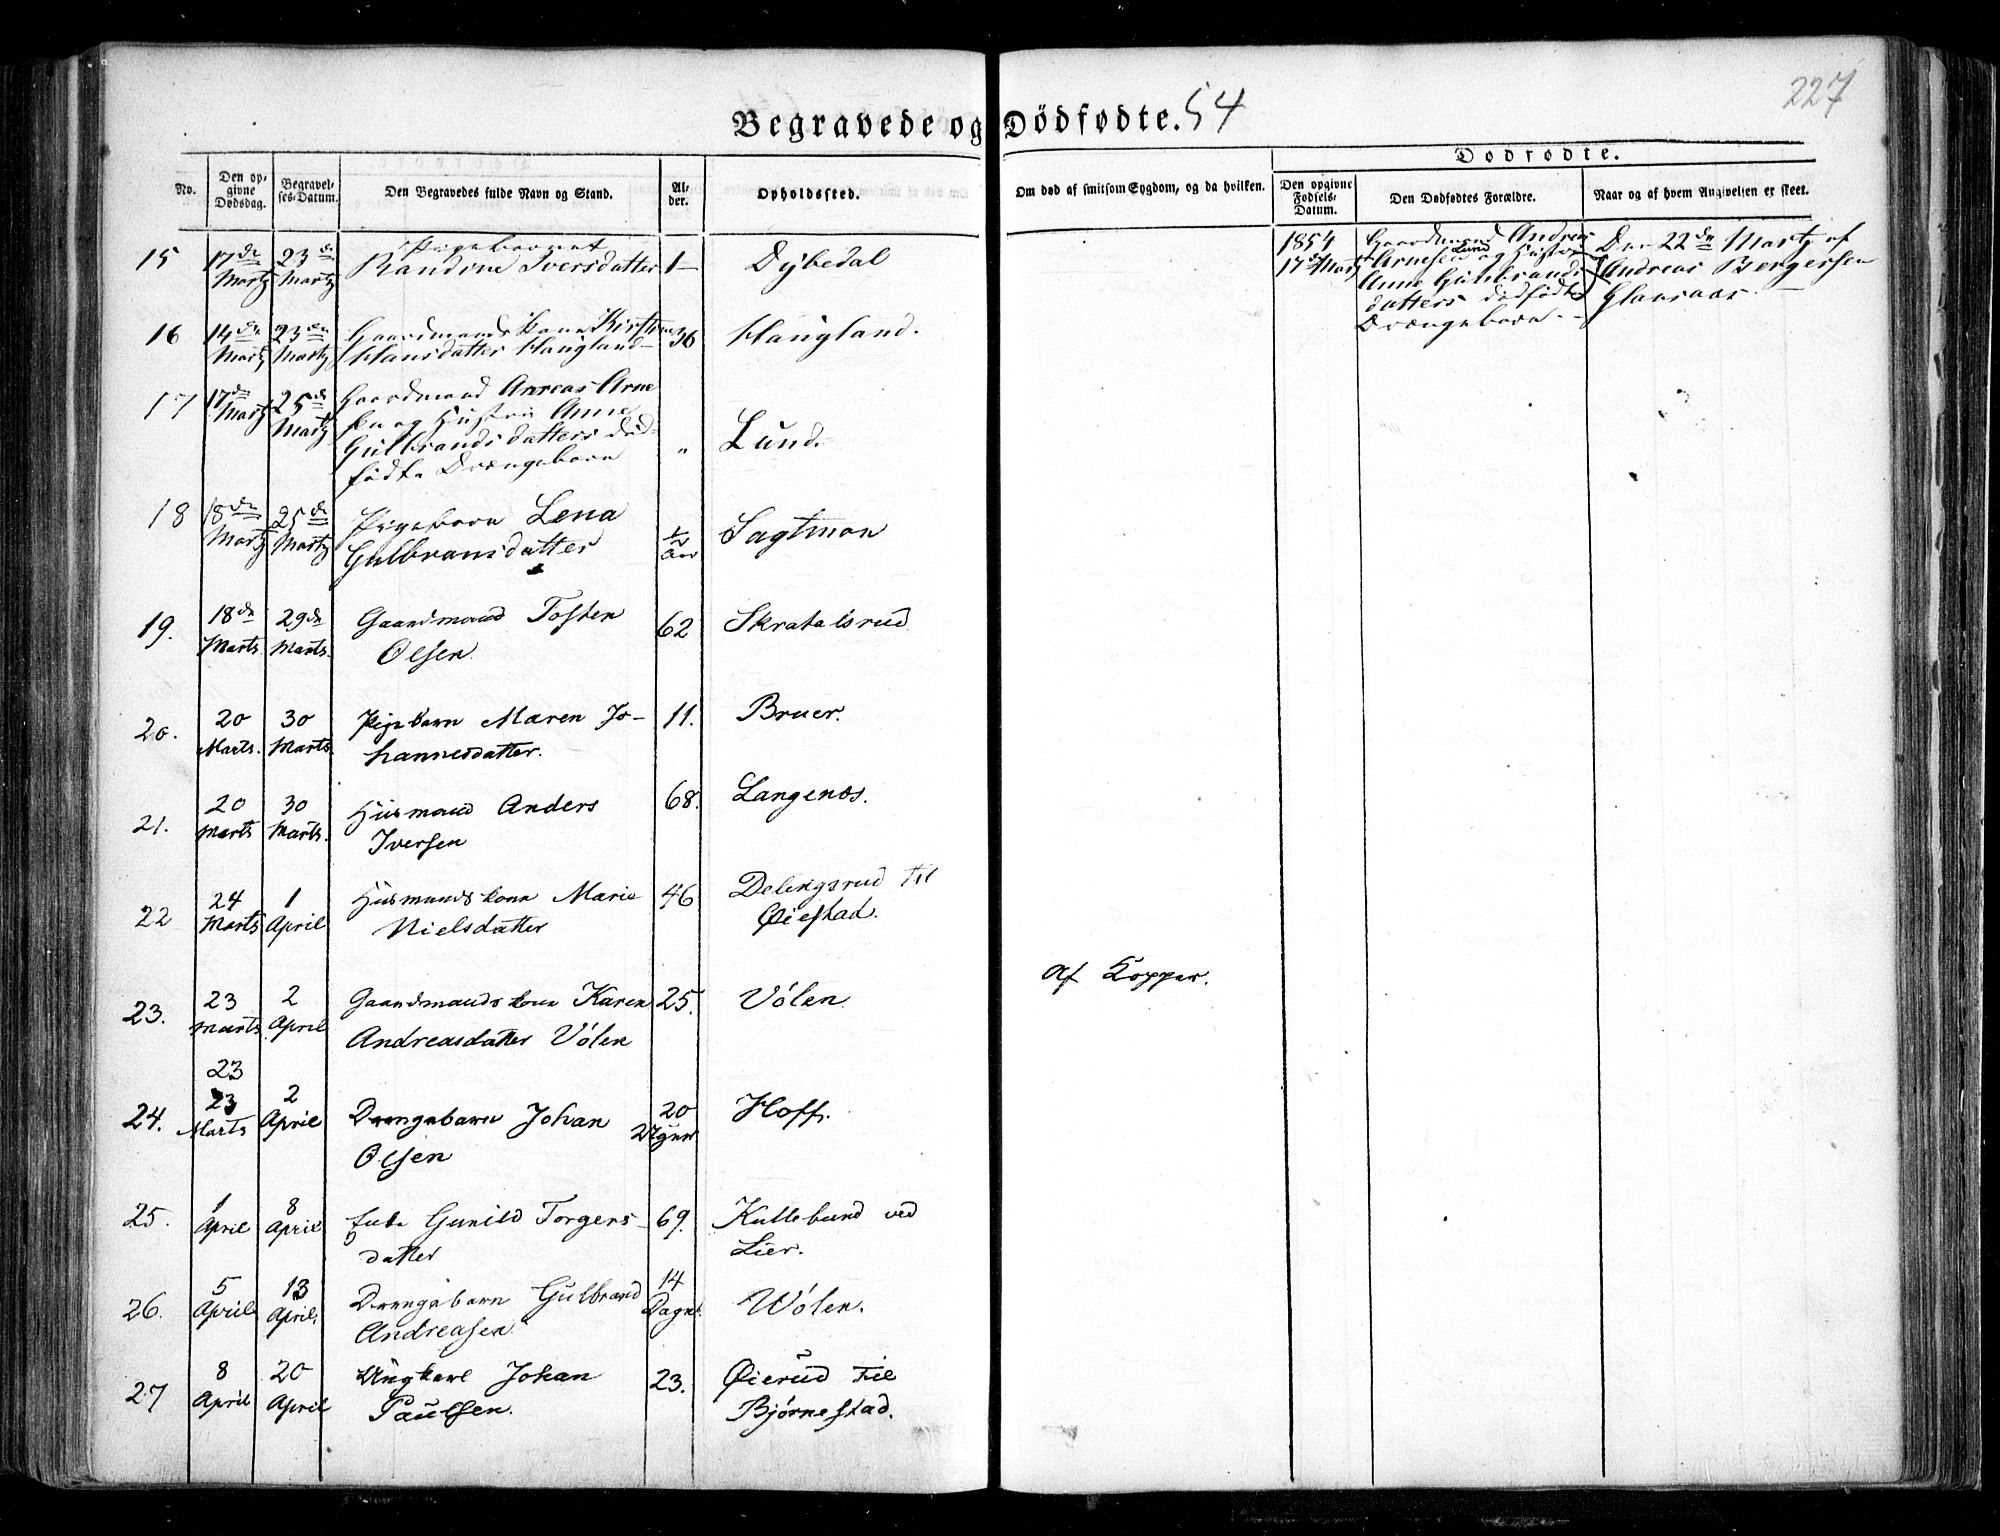 227
Begravede og Dödfödte. 54
Dödfödte.
No.
Den op-
givne
Dødsdag.
Begravel-
ses-Datum.
Den Begravedes fulde Navn og Stand.
Al-
der.
Opholdssted.
Om død af smitsom Sygdom, og da hvilken.
Den opgivne
Fødsels-
Datum.
Den Dødfødtes Forældre.
Naar og af hvem Angivelsen er skeet.
15 17de Martz 23de Martz Pigebarnet
Randine Iversdatter 1 Dybedal
1854
17de Martz
Gaardmand Andreas
Arnesen Lund og Hustro
Anne Gulbrands
datters dødfødte
Drængebarn
Den 22de Martz af
Andreas Bergersen
Glansaas
16 14de Martz 23de Martz Gaardmands Kone Kirstine
Hansdatter Haugland 36 Haugland.
17 17de Martz 25de Martz Gaardmand Andreas Arne
sen og Hustru Anne
Gulbrandsdatters død-
fødte Drængebarn " Lund.
18 18de Martz 25de Martz Pigebarn Lena
Gulbransdatter 1/2 Aar Sagtmon
19. 18de Marts. 29de Marts. Gaardmand Tosten
Olsen. 62 Skratalsrud
20. 20 Marts. 30 Marts. Pigebarn Maren Jo-
hannesdatter. 11. Bruer.
21. 20 Marts 30 Marts. Husmand Anders
Iversen 68. Langenæs.
22 24 Marts 1 April Husmandskone Marie
Nielsdatter 46 Delingsrud til
Øiestad.
23. 23 Marts 2 April Gaardmands kone Karen
Andreasdatter Vólen 25. Vólen Af Kopper.
23
24. 23 Marts 2 April Drengebarn Johan
Olsen 20 Uger Hoff.
25. 1 April 8 April Enke Gunild Torgers-
datter 69. Kullebund ved
Lier.
26. 5 April 13 April. Drengebarn Gulbrand
Andreasen. 14 Dage Wólen.
27 8 April 20 April Ungkarl Johan
Paulsen. 23. Øierud til
Bjørnestad.